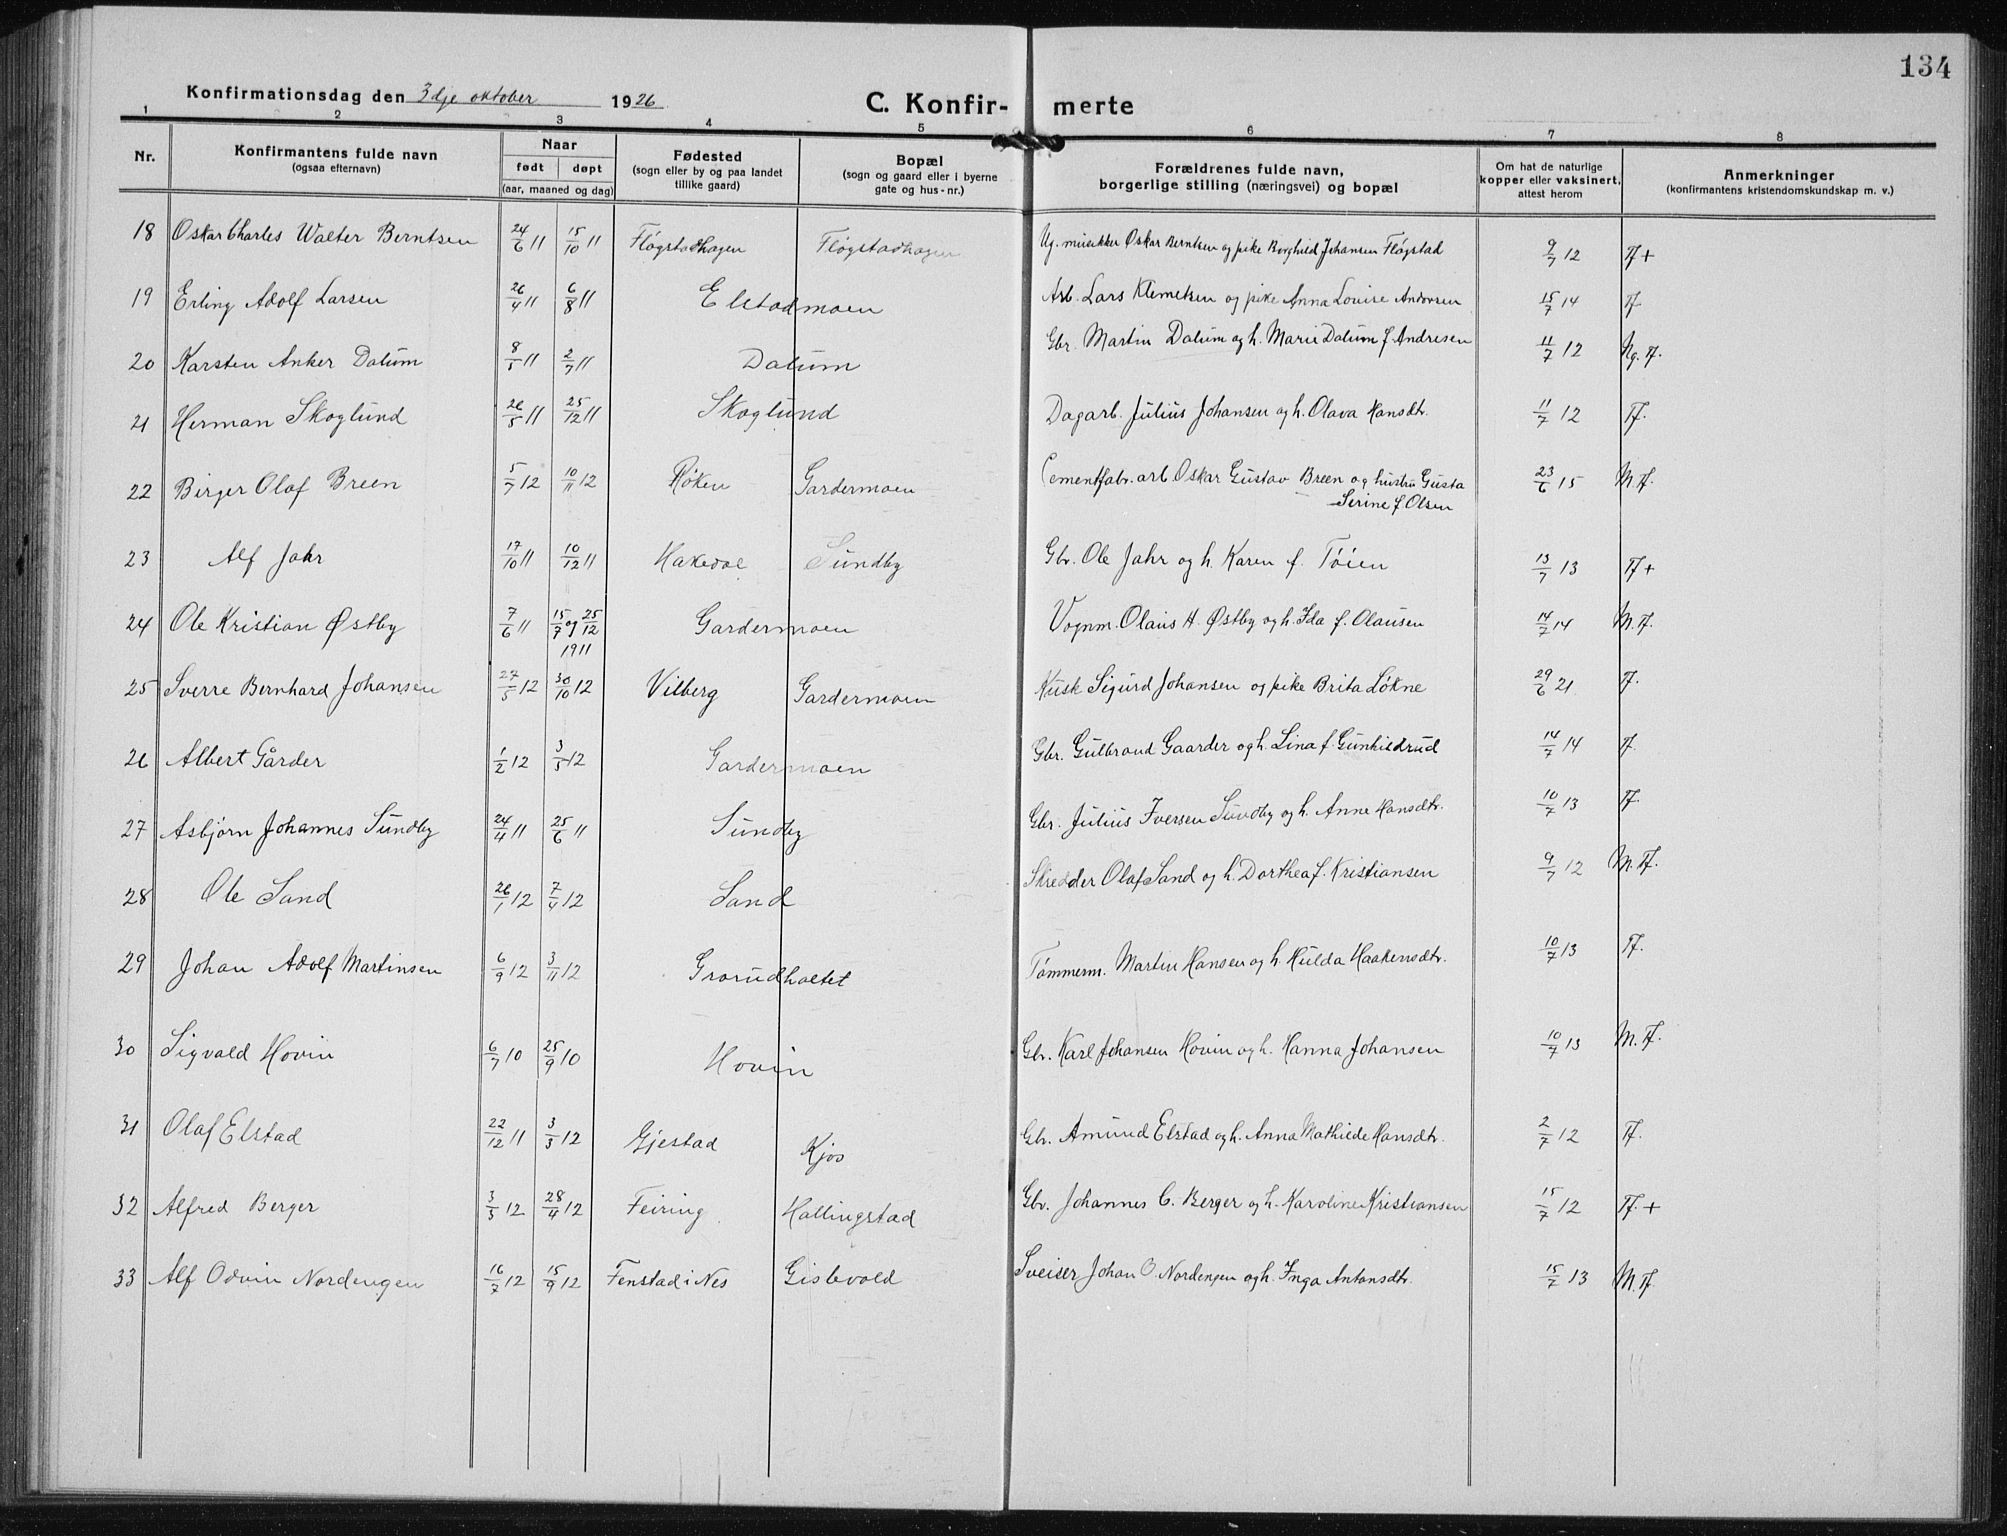 134
Konfirmationsdag den 3dje oktober 1926
C. Konfirmerte
1 2 3 4 5 6 7 8
Nr.
Konfirmantens fulde navn
(ogsaa efternavn)
Naar
født døpt
(aar, maaned og dag)
Fødested
(sogn eller by og paa landet
tillike gaard)
Bopæl
(sogn og gaard eller i byerne
gate og hus-nr.)
Forældrenes fulde navn,
borgerlige stilling (næringsvei) og bopæl
Om hat de naturlige
kopper eller vaksinert,
attest herom
Anmerkninger
(konfirmantens kristendomskundskap m. v.)
18 Oskar Charles Walter Berntsen 24/6 11 15/10 11 Fløgstadhagen Fløgstadhagen Ug. musikker Oskar Berntsen og pike Borghild Johansen Fløgstad 9/7 12
19 Erling Adolf Larsen 26/4 11 6/8 11 Elstadmoen Arb. Lars Klemetsen og pike Anna Louise Andersen 15/7 14
20 Karsten Anker Dalum 8/5 11 2/7 11 Dalum Gbr. Martin Dalum og h. Marie Dalum f. Andresen 11/7 12
21 Herman Skoglund 26/5 11 25/12 11 Skoglund Dagarb. Julius Johansen og h. Olava Hansdtr. 11/7 12
22 Birger Olaf Breen 5/7 12 10/11 12 Røken Gardermoen Cementfabr. arb Oskar Gustav Breen og hustru Gusta
Serine f. Olsen 23/6 15
23 Alf Jahr 17/10 11 10/12 11 Hakedal Sundby Gbr. Ole Jahr og h. Karen f. Tøien 13/7 13
24 Ole Kristian Østby 7/6 11 15/7 og 25/12 Gardermoen Vognm. Olaus H. Østby og h. Ida f. Olausen 14/7 14
1911
25 Sverre Bernhard Johansen 27/5 12 30/10 12 Vilberg Gardermoen Kusk Sigurd Johansen og pike Brita Løkne 29/6 21
26 Albert Gårder 1/2 12 3/5 12 Gardermoen Gbr. Gulbrand Gaarder og h. Lina f. Gunhildrud 14/7 14
27 Asbjørn Johannes Sundby 24/4 11 25/6 11 Sundby Gbr. Julius Iversen Sundby og h. Anne Hansdtr. 10/7 13
28 Ole Sand 26/1 12 7/4 12 Sand Skredder Olaf Sand og h. Dorthea f. Kristiansen 9/7 12
29 Johan Adolf Martinsen 6/9 12 3/11 12 Grorudholtet Tømmerm. Martin Hansen og h. Hulda Haakensdtr. 10/7 13
30 Sigvald Hovin 6/7 10 25/9 10 Hovin Gbr. Karl Johansen Hovin og h. Hanna Johansen 10/7 13
31 Olaf Elstad 22/12 11 3/3 12 Gjestad Kjos Gbr. Amund Elstad og h. Anna Mathilde Hansdtr. 2/7 12
32 Alfred Berger 3/3 12 28/4 12 Feiring Hallingstad Gbr. Johannes C. Berger og h. Karoline Kristiansen 15/7 12
33 Alf Odvin Nordengen 16/7 12 15/9 12 Fenstad i Nes Gislevold Sveiser Johan O. Nordengen og h. Inga Antonsdtr. 15/7 13